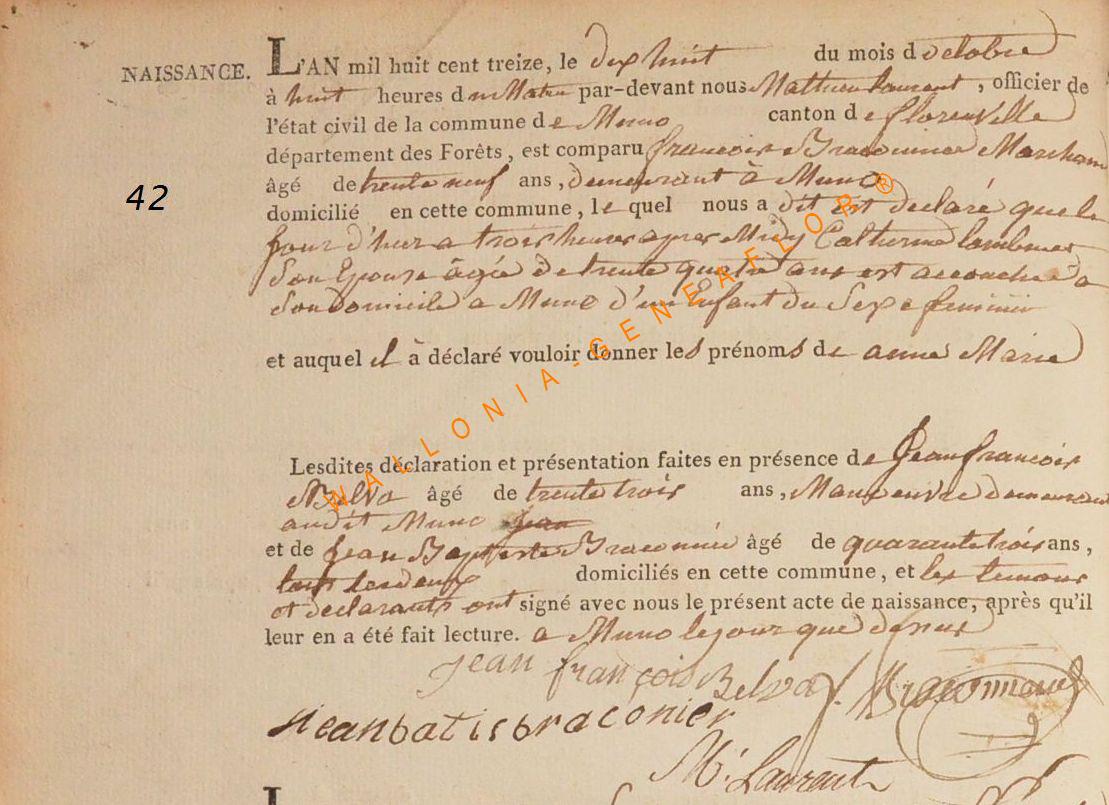 NAISSANCE.
L'AN mil huit cent treize, le dix huit du mois d'octobre
à huit heures du Matin par-devant nous Mathieu Laurent, officier de
l'état civil de la commune de Muno canton de florenville
département des Forêts, est comparu francois Braconnier Marchand
42
âgé de trente neuf ans, demeurant à Muno
domicilié en cette commune, le quel nous a dit est declaré que le
Jour d'hier a trois heures apres Midy Catherine
Son Epouse âgée de trente quatre ans est accouchée a
Son domicile a Muno d'un Enfant du Sexe feminin
et auquel il à déclaré vouloir donner les prénoms de anne Marie
Lesdites déclaration et présentation faites en présence de Jean francois
Belva âgé de trente trois ans, Manoeuvre demeurant
audit Muno Jean
et de Jean Baptiste Braconnié âgé de quarante trois ans,
tous les deux domiciliés en cette commune, et les temoins
et declarants ont signé avec nous le présent acte de naissance, après qu'il
leur en a été fait lecture. a Muno le jour que desus
jean françois Belva f. Braconnier
Jean batis braconier
M. Laurent
WALLONIA-GENEAFLOR®